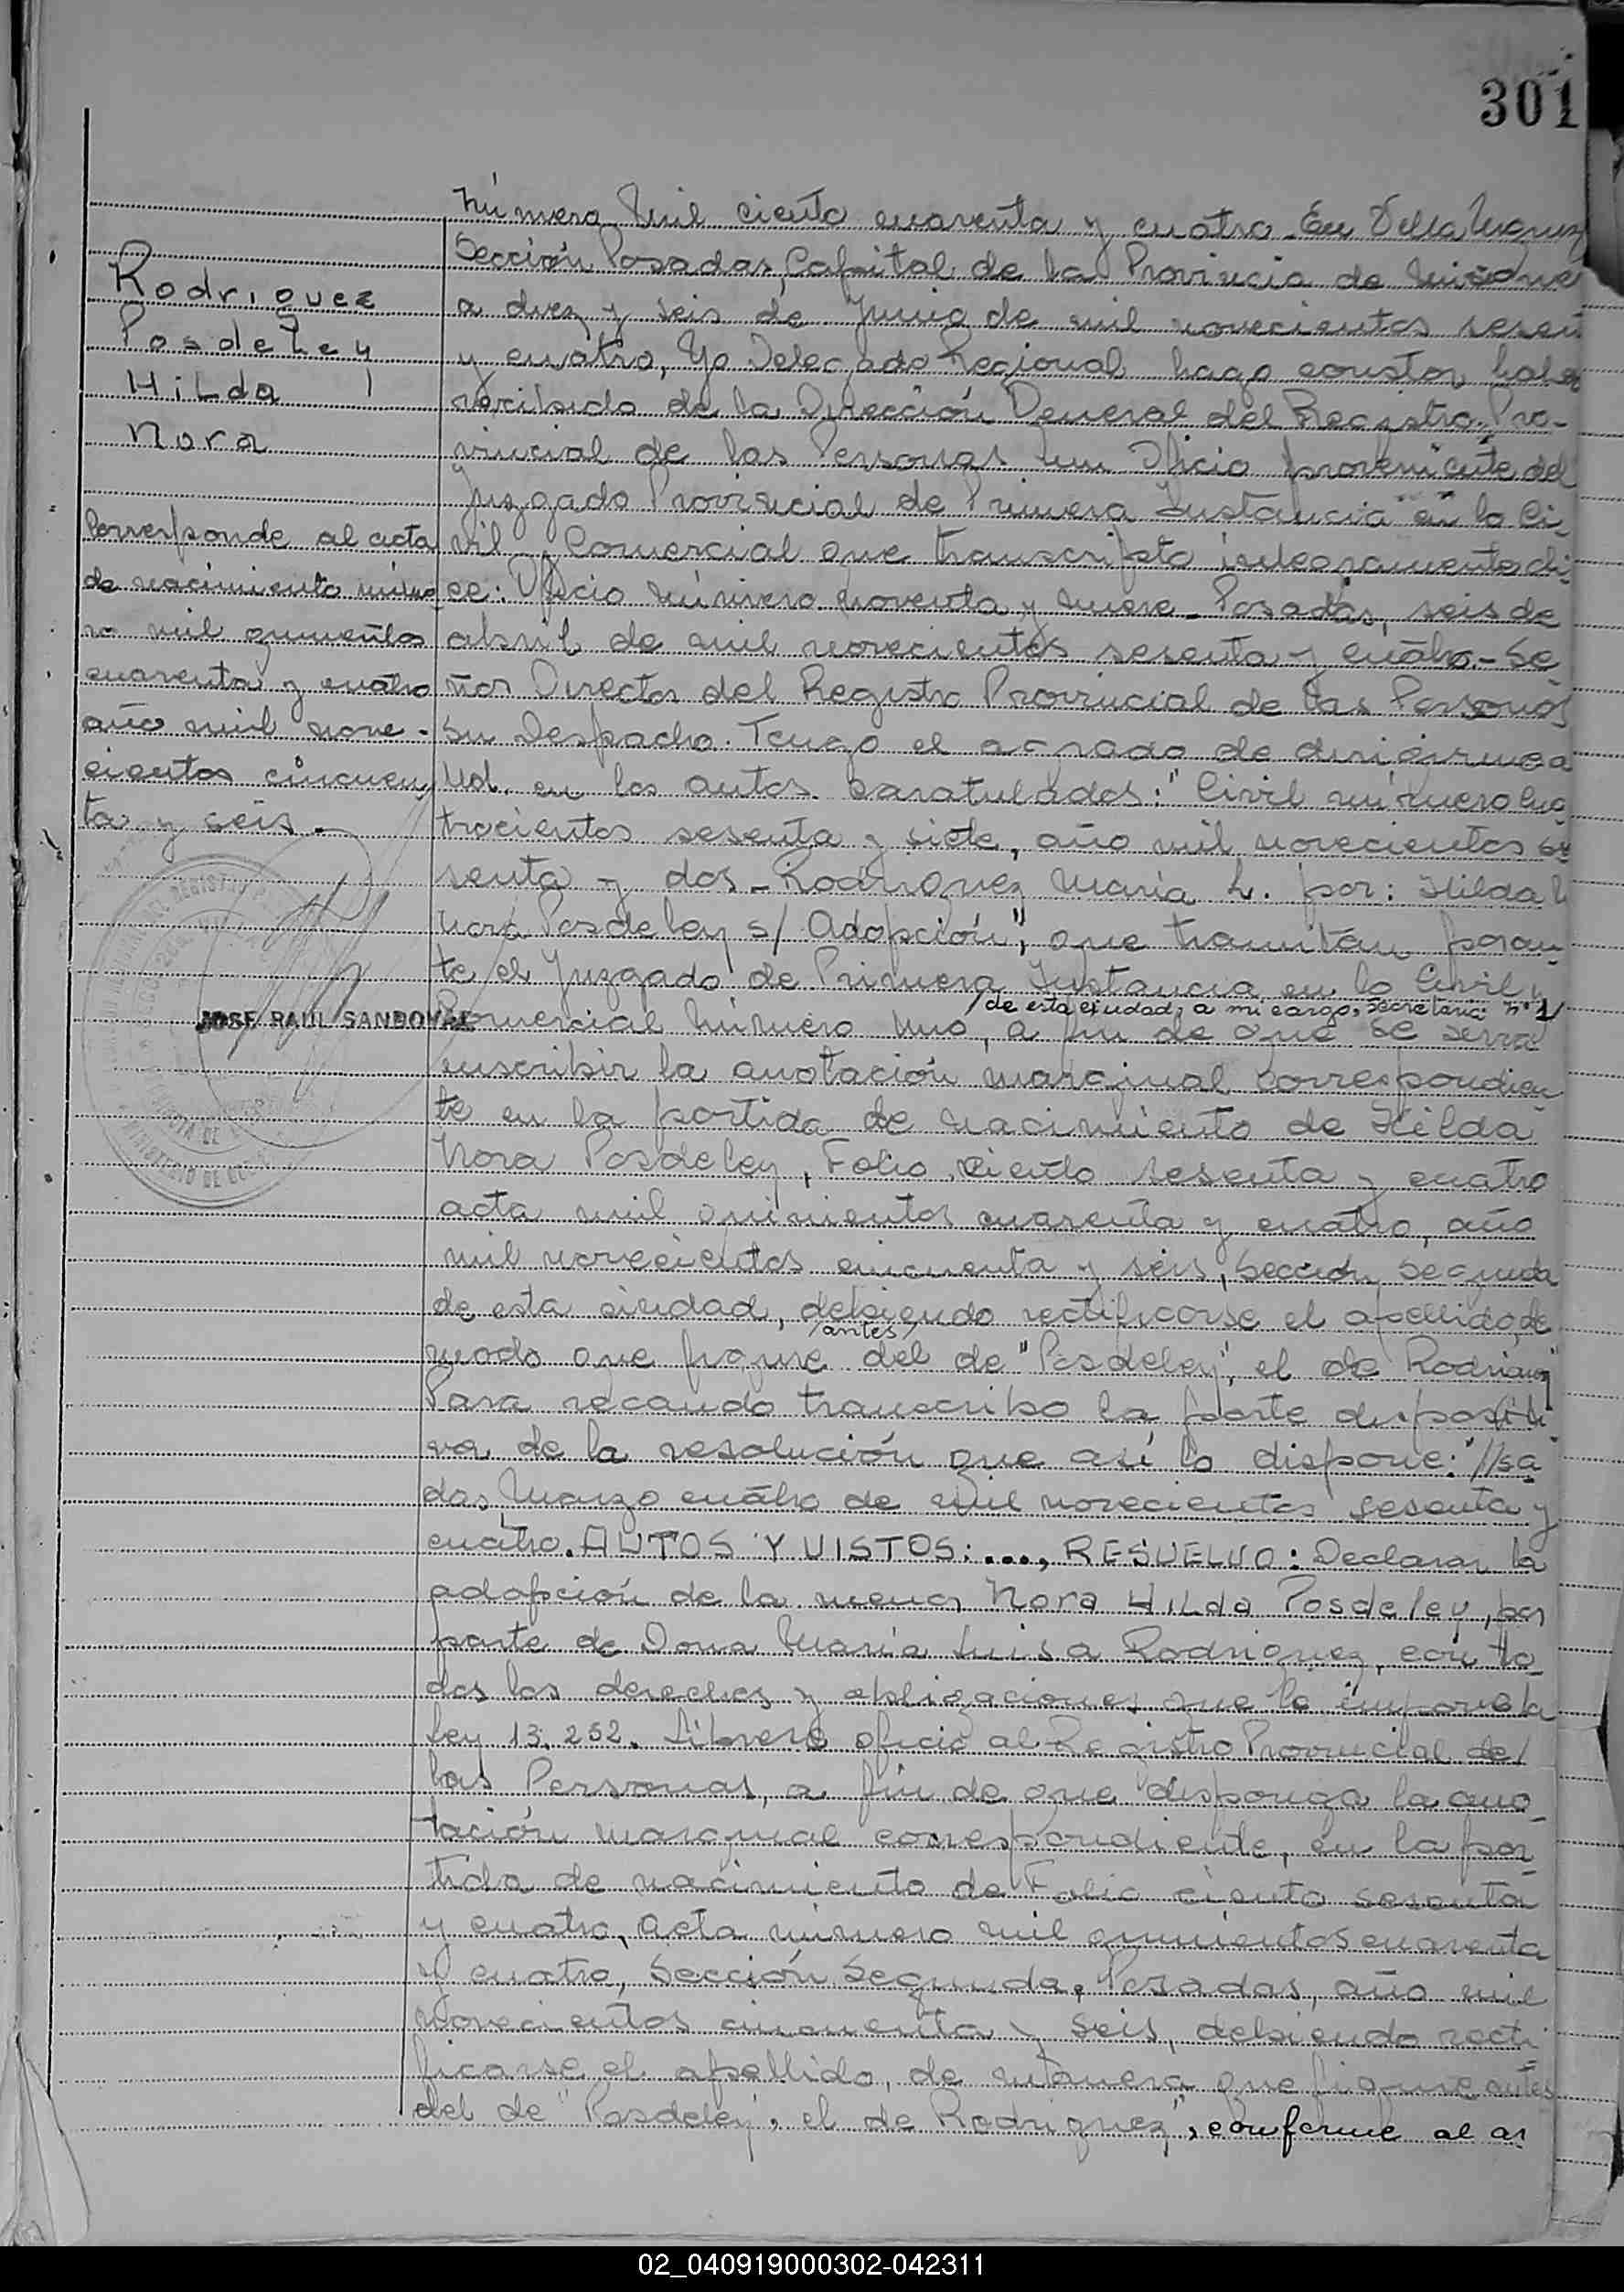 301
Rodriguez
Posdeley
Hilda
Nora
Corresponde al acta
de nacimiento núme-
ro mil quinientos
cuarenta y cuatro
año mil nove-
cientos cincuen
ta y seis.-
JOSE RAUL SANDOVAL
Número Mil ciento cuarenta y cuatro. En
Sección Posadas, Capital de la Provincia de Misiones
a diez y seis de Junio de mil novecientos sesen
y cuatro, Yo Delegado Regional hago constar haber
recibido de la Dirección General del Registro Pro-
vincial de las Personas un Oficio proveniente del
Juzgado Provincial de Primera Instancia en lo Ci-
vil y Comercial que transcripto integramente di-
ce: Oficio número noventa y nueve - Posadas, seis de
abril de mil novecientos sesenta y cuatro.- Se
ñor Director del Registro Provincial de las Personas
Su Despacho. Tengo el agrado de dirigirme a
Ud. en los autos caratulados: "Civil número cua
trocientos sesenta y siete, año mil novecientos se
senta y dos - Rodriguez Maria L. por: Hilda
Nora Posdeley s/ Adopción", que tramitan por an-
te el Juzgado de Primera Instancia en lo Civil y
/de esta ciudad, a mi cargo, Secretaria nº 1/
Comercial Número Uno, a fin de que se sirva
inscribir la anotación marginal correspondien
te en la partida de nacimiento de Hilda
Nora Posdeley, Folio ciento sesenta y cuatro
acta mil quinientos cuarenta y cuatro, año
mil novecientos cincuenta y seis, Sección Segunda
de esta ciudad, debiendo rectificarse el apellido, de
/antes/
modo que figure del de "Posdeley", el de Rodriguez"
Para recaudo transcribo la parte dispositi
va de la resolución que así lo dispone: "//sa
das, Marzo cuatro de mil novecientos sesenta y
cuatro. AUTOS Y VISTOS: ...., RESUELVO: Declarar la
adopción de la menor Nora Hilda Posdeley, por
parte de Dona Maria Luisa Rodriguez, con to-
dos los derechos y obligaciones que le impone la
ley 13.252. Librese oficio al Registro Provincial de/
las Personas, a fin de que disponga la ano-
tación marginal correspondiente, en la par
tida de nacimiento de Folio ciento sesenta
y cuatro, acta número mil quinientos cuarenta
y cuatro, Sección Segunda, Posadas, año mil
novecientos cincuenta y seis, debiendo recti
ficarse el apellido, de manera que figure antes
del de "Posdeley", el de Rodriguez", conforme al ar
02_040919000302-042311